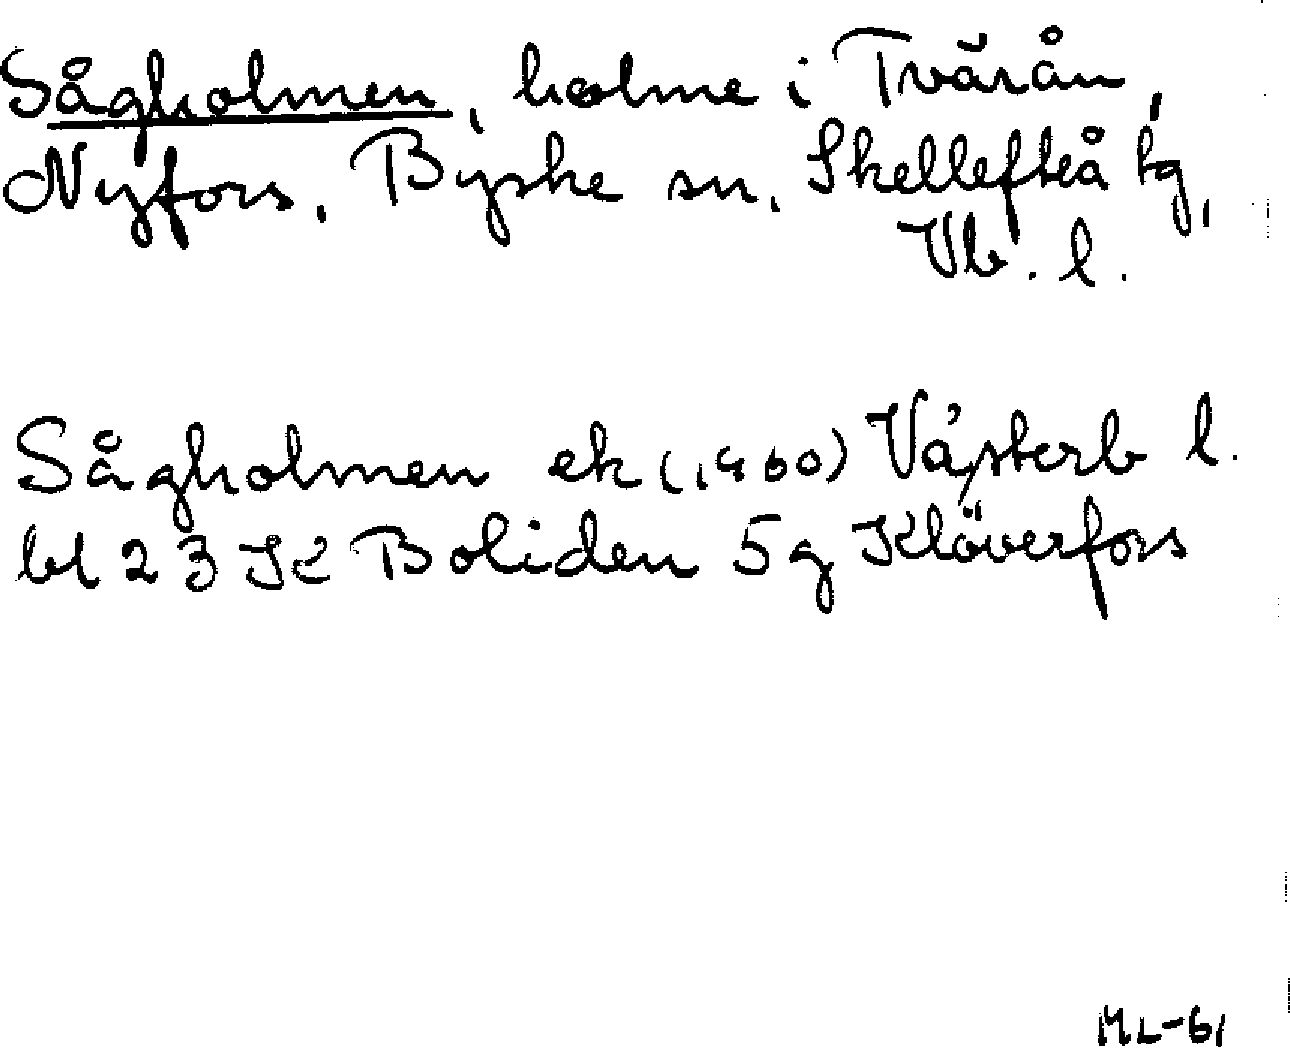 Sågholmen, holme i Tvärån,
Nyfors, Byske sn, Skellefteå tg,
Vb. l.
Sågholmen ek (1960) Västerb l.
bl 23 K Boliden 5g Klöverfors
ML-61